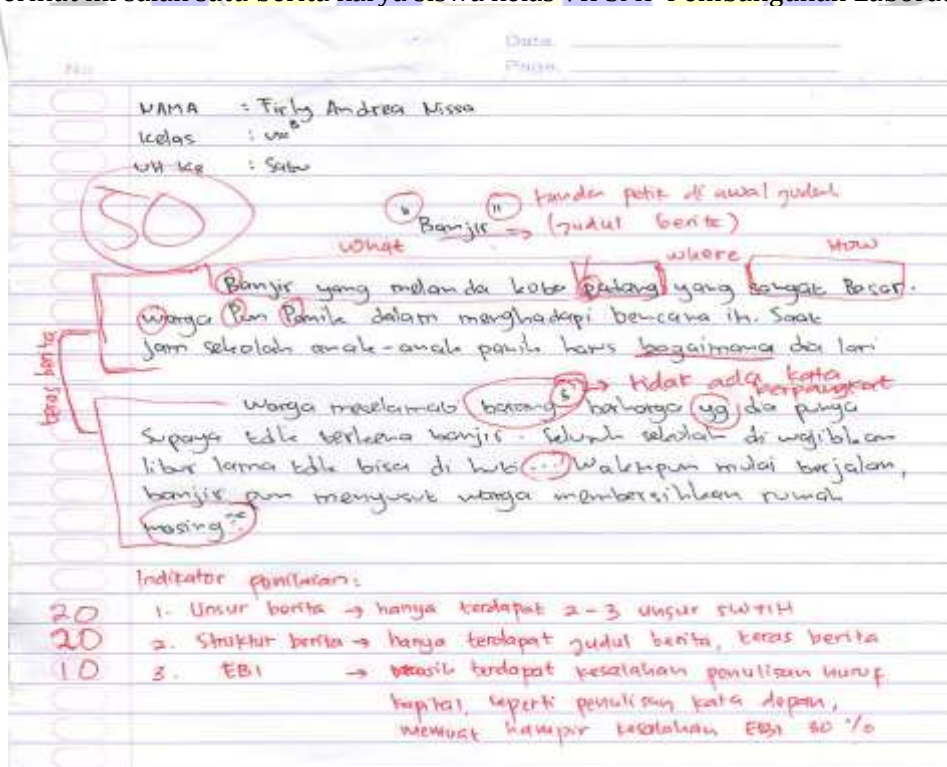 Date.
Page.
No
NAMA : Firly Andrea Nissa
Kelas : VIII B
UH Ke : Satu
50
" Banjir " → tanda petik di awal judul (judul berita)
What where How
Banjir yang melanda kota padang yang sangat Besar.
Warga Pun Panik dalam menghadapi bencana ini. Saat
jam sekolah anak-anak panik harus bagaimana dia lari
teras berita
→ tidak ada kata berpangkat
Warga meselamab barang² berharga yg dia punya
Supaya tdk terkena banjir. Seluruh sekolah di wajibkan
libur lama tdk bisa di hubi... Waktupun mulai berjalan,
banjir pun menyusut warga membersihkan rumah
masing²
Indikator penilaian:
20 1. Unsur berita → hanya terdapat 2-3 unsur 5W+1H
20 2. Struktur berita → hanya terdapat judul berita, teras berita
10 3. EBI → masih terdapat kesalahan penulisan huruf
kapital, seperti penulisan kata depan,
memuat hampir kesalahan EBI 30 %